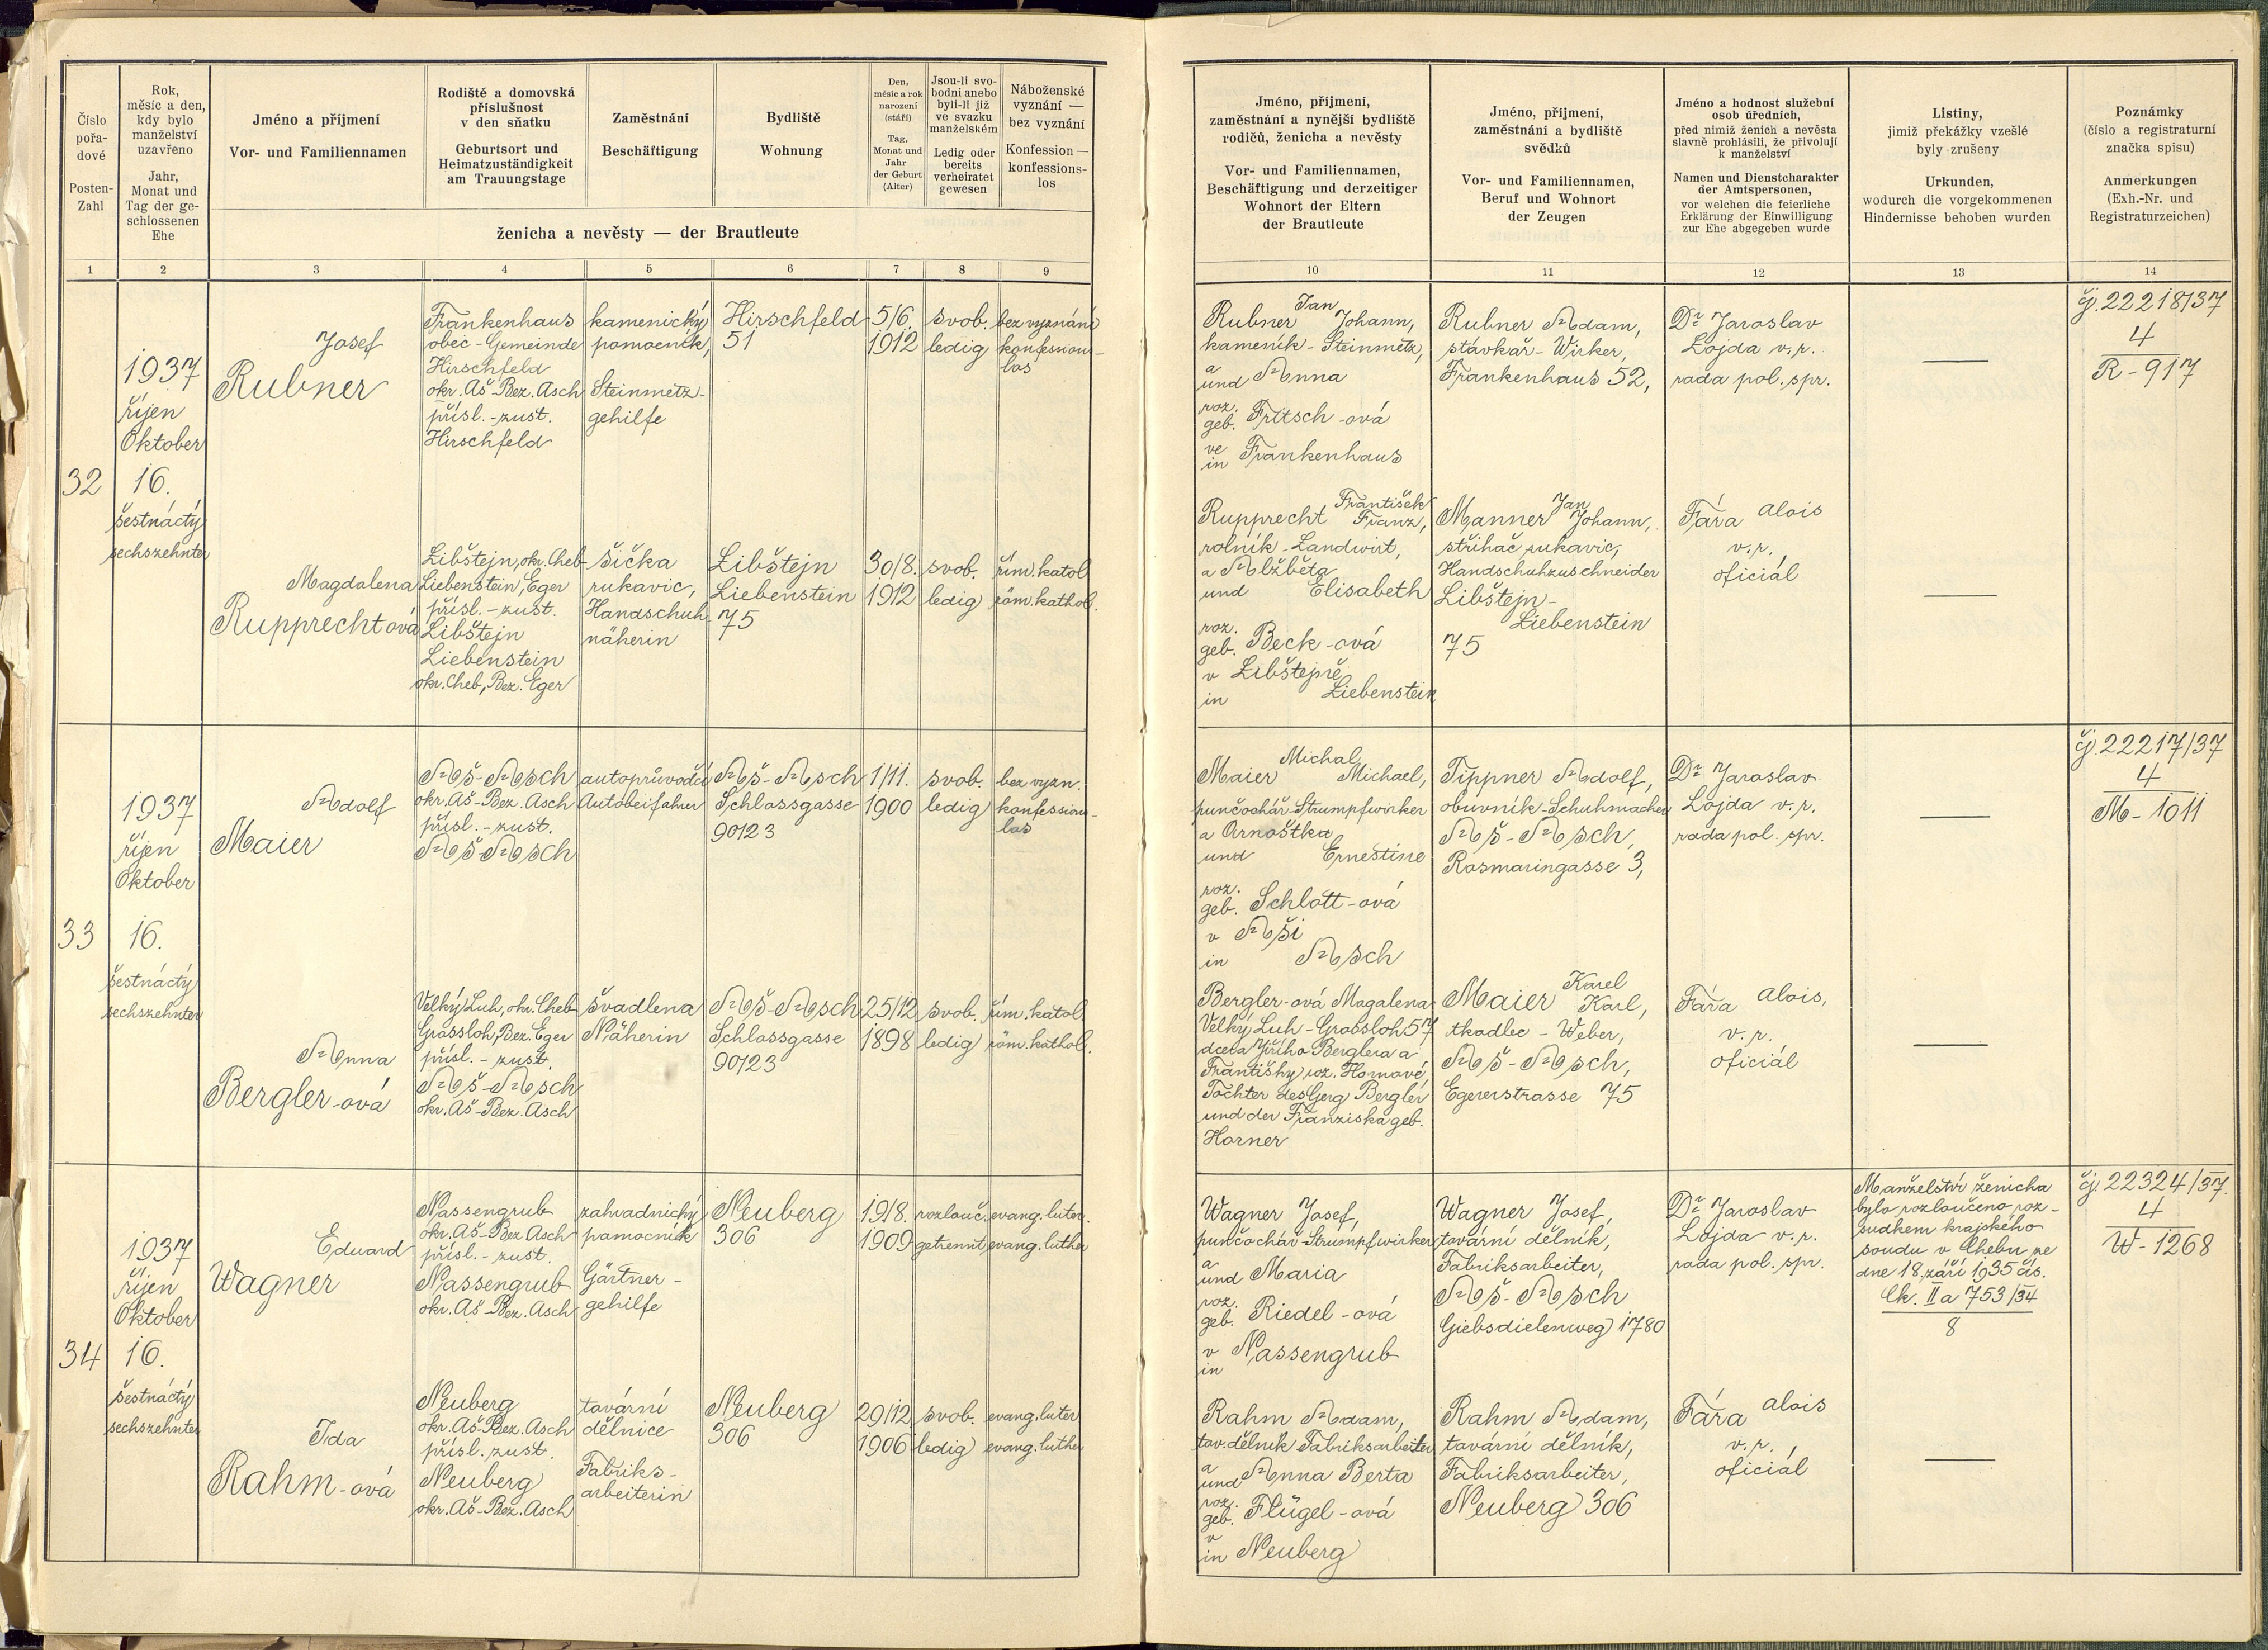 Číslo
pořa-
dové
Posten-
Zahl
Rok,
měsíc a den,
kdy bylo
manželství
uzavřeno
Jahr,
Monat und
Tag der ge-
schlossenen
Ehe
Jméno a příjmení
Vor- und Familiennamen
Rodiště a domovská
příslušnost
v den sňatku
Geburtsort und
Heimatzuständigkeit
am Trauungstage
Zaměstnání
Beschäftigung
Bydliště
Wohnung
Den,
měsíc a rok
narození
(stáří)
Tag,
Monat und
Jahr
der Geburt
(Alter)
Jsou-li svo-
bodni anebo
byli-li již
ve svazku
manželském
Ledig oder
bereits
verheiratet
gewesen
Náboženské
vyznání —
bez vyznání
Konfession —
konfessions-
los
ženicha a nevěsty — der Brautleute
1
2
3
4
5
6
7
8
9
32
1937
říjen
Oktober
16.
šestnáctý
sechszehnter
Josef
Rubner
Frankenhaus
obec - Gemeinde
Hirschfeld
okr. Aš - Bez. Asch
přísl. - zust.
Hirschfeld
kamenický
pomocník,
Steinmetz-
gehilfe
Hirschfeld
51
5/6.
1912
svob.
ledig
bez vyznání
konfessions-
los
Magdalena
Rupprechtová
Libštejn, okr. Cheb
Liebenstein, Eger
přísl. - zust.
Libštejn
Liebenstein
okr. Cheb, Bez. Eger
šička
rukavic,
Handschuh-
näherin
Libštejn
Liebenstein
75
30/8.
1912
svob.
ledig
řím. katol.
röm. kathol.
33
1937
říjen
Oktober
16.
šestnáctý
sechszehnter
Adolf
Maier
Aš - Asch
okr. Aš - Bez. Asch
přísl. - zust.
Aš - Asch
autoprůvodčí
Autobeifahrer
Aš - Asch
Schlossgasse
901/23
1/11.
1900
svob.
ledig
bez vyzn.
konfessions-
los
Anna
Bergler-ová
Velký Luh, okr. Cheb
Grossloh, Bez. Eger
přísl. - zust.
Aš - Asch
okr. Aš - Bez. Asch
švadlena
Näherin
Aš - Asch
Schlossgasse
901/23
25/12
1898
svob.
ledig
řím. katol.
röm. kathol.
34
1937
říjen
Oktober
16.
šestnáctý
sechszehnter
Eduard
Wagner
Nassengrub
okr. Aš - Bez. Asch
přísl. - zust.
Nassengrub
okr. Aš - Bez. Asch
zahradnický
pomocník
Gärtner-
gehilfe
Neuberg
306
19/8.
1909
rozlouč.
getrennt
evang. luter.
evang. luther
Ida
Rahm-ová
Neuberg
okr. Aš - Bez. Asch
přísl. zust.
Neuberg
okr. Aš - Bez. Asch
tovární
dělnice
Fabriks-
arbeiterin
Neuberg
306
29/12
1906
svob.
ledig
evang. luter
evang. luther
Jméno, příjmení,
zaměstnání a nynější bydliště
rodičů, ženicha a nevěsty
Vor- und Familiennamen,
Beschäftigung und derzeitiger
Wohnort der Eltern
der Brautleute
Jméno, příjmení,
zaměstnání a bydliště
svědků
Vor- und Familiennamen,
Beruf und Wohnort
der Zeugen
Jméno a hodnost služební
osob úředních,
před nimiž ženich a nevěsta
slavně prohlásili, že přivolují
k manželství
Namen und Dienstcharakter
der Amtspersonen,
vor welchen die feierliche
Erklärung der Einwilligung
zur Ehe abgegeben wurde
Listiny,
jimiž překážky vzešlé
byly zrušeny
Urkunden,
wodurch die vorgekommenen
Hindernisse behoben wurden
Poznámky
(číslo a registraturní
značka spisu)
Anmerkungen
(Exh.-Nr. und
Registraturzeichen)
10
11
12
13
14
Jan
Rubner Johann,
kameník - Steinmetz,
a
und Anna
roz.
geb. Fritsch-ová
ve
in Frankenhaus
Rubner Adam,
stávkař - Wirker,
Frankenhaus 52,
Dr Jaroslav
Lojda v. r.
rada pol. spr.
—
čj. 22218/37
4
R - 917
František
Rupprecht Franz,
rolník - Landwirt,
a Alžběta
und Elisabeth
roz.
geb. Beck-ová
v Libštejně
in Liebenstein
Jan
Manner Johann,
střihač rukavic,
Handschuhzuschneider
Libštejn -
Liebenstein
75
Fára Alois
v. r.
oficiál
—
Michal
Maier Michael,
punčochář - Strumpfwirker
a Arnoštka
und Ernestine
roz.
geb. Schlott-ová
v Aši
in Asch
Tippner Adolf,
obuvník - Schuhmacher
Aš - Asch,
Rosmaringasse 3,
Dr Jaroslav
Lojda v. r.
rada pol. spr.
—
čj. 22217/37
4
M - 1011
Bergler-ová Magalena
Velký Luh - Grossloh 57
dcera Jiřího Berglera a
Františky roz. Hornové,
Tochter des Gerg Bergler
und der Franziska geb.
Horner
Karel
Maier Karl,
tkadlec - Weber,
Aš - Asch,
Egererstrasse 75
Fára Alois,
v. r.
oficiál
—
Wagner Josef,
punčochář - Strumpfwirker
a
und Maria
roz.
geb. Riedel-ová
v
in Nassengrub
Wagner Josef,
tovární dělník,
Fabriksarbeiter,
Aš - Asch
Giebsdielenweg 1780
Dr Jaroslav
Lojda v. r.
rada pol. spr.
Manželství ženicha
bylo rozloučeno roz-
sudkem krajského
soudu v Chebu ze
dne 18. září 1935 čís.
Ck. IIa 753/34
8
čj. 22324/37.
4
W - 1268
Rahm Adam,
tov. dělník Fabriksarbeiter
a
und Anna Berta
roz.
geb. Flügel-ová
v
in Neuberg
Rahm Adam,
tovární dělník,
Fabriksarbeiter,
Neuberg 306
Fára Alois
v. r.
oficiál
—